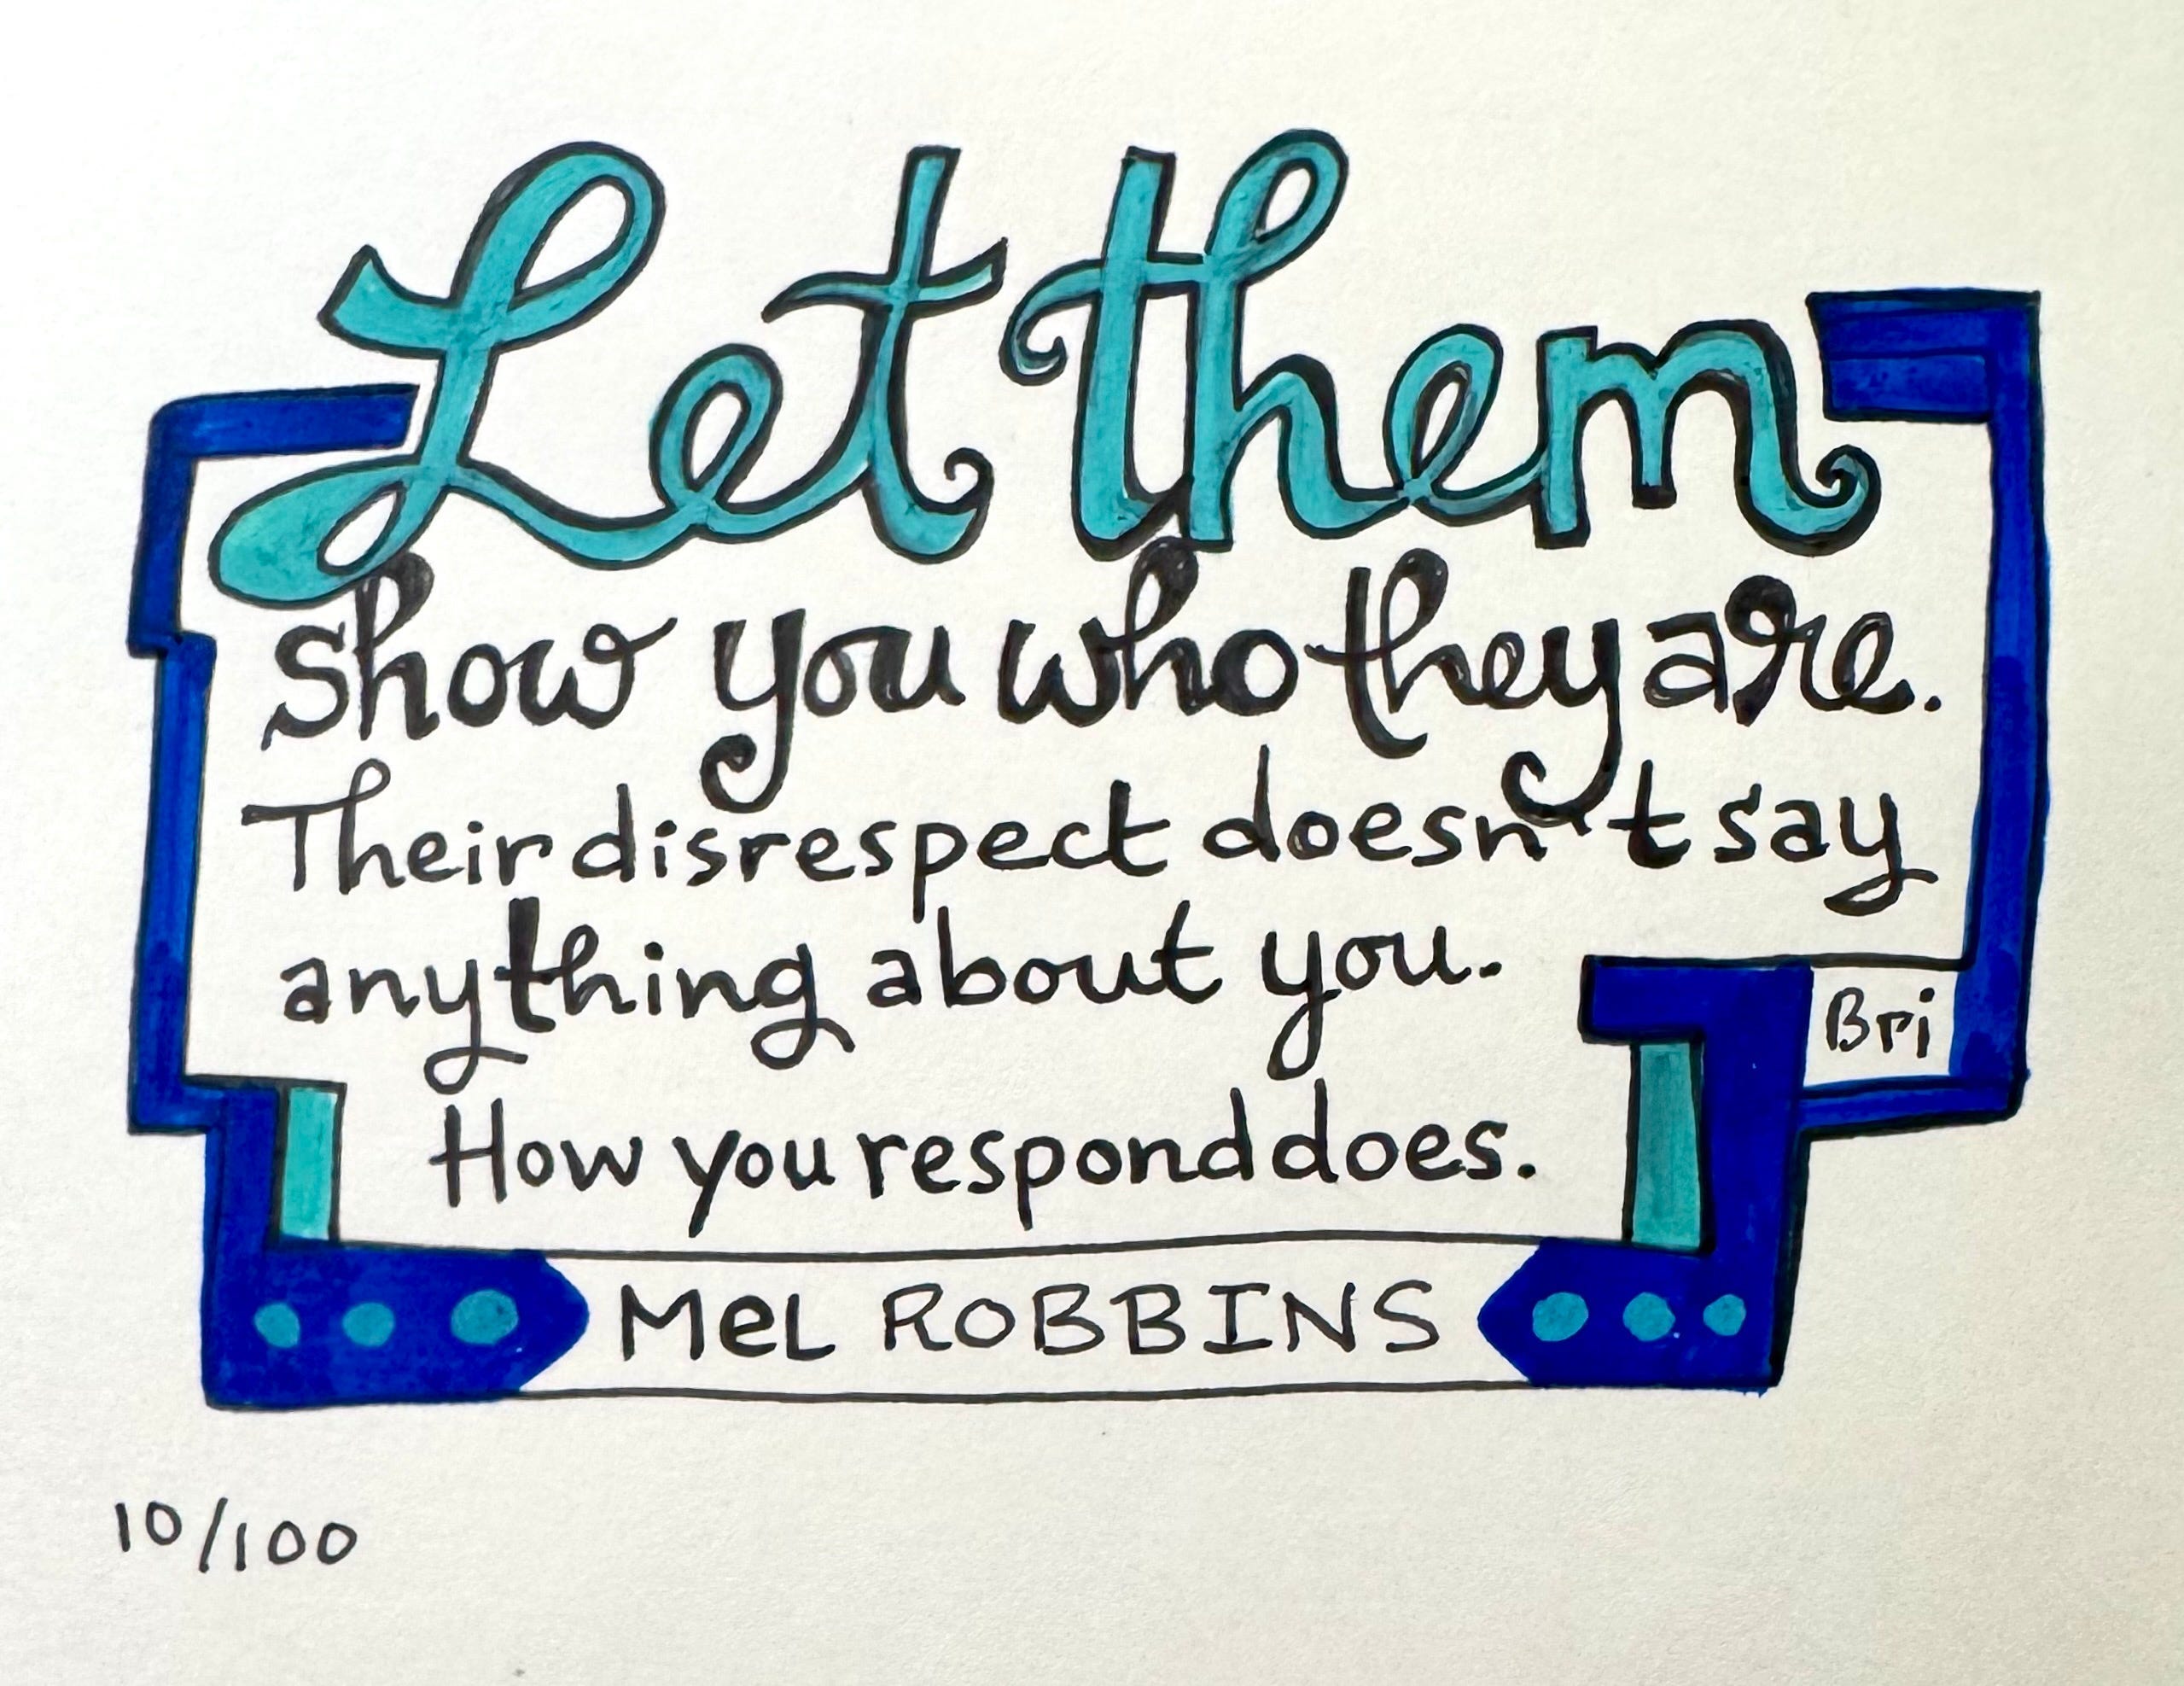 Let them
show you who they are.
Their disrespect doesn't say
anything about you.
Bri
How you respond does.
MeL ROBBINS
10/100